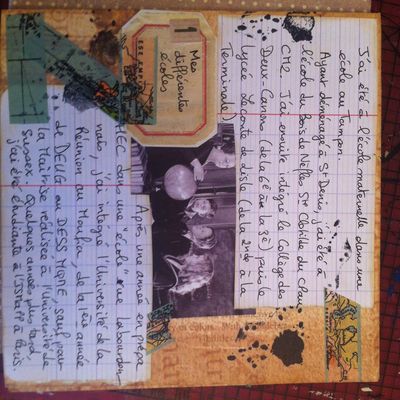 1
Mes
différentes
écoles
J'ai été à l'école maternelle dans une
école au Tampon.
Ayant déménagé à St Denis, j'ai été à
l'école du Bois de Nèfles Ste Clotilde du
CM2. J'ai ensuite intégré le Collège des
Deux-Canons (de la 6è à la 3è) puis le
Lycée Leconte de Lisle (de la 2nde à la
Terminale)
Après une année en prépa
HEC dans une école "rue Labourdon-
nais", j'ai intégré l'Université de la
Réunion au Moufia, de la 1ère année
de DEUG au DESS sauf pour
la Maîtrise réalisée à l'Université de
Sussex. Quelques années plus tard,
j'ai été étudiante à à Paris.